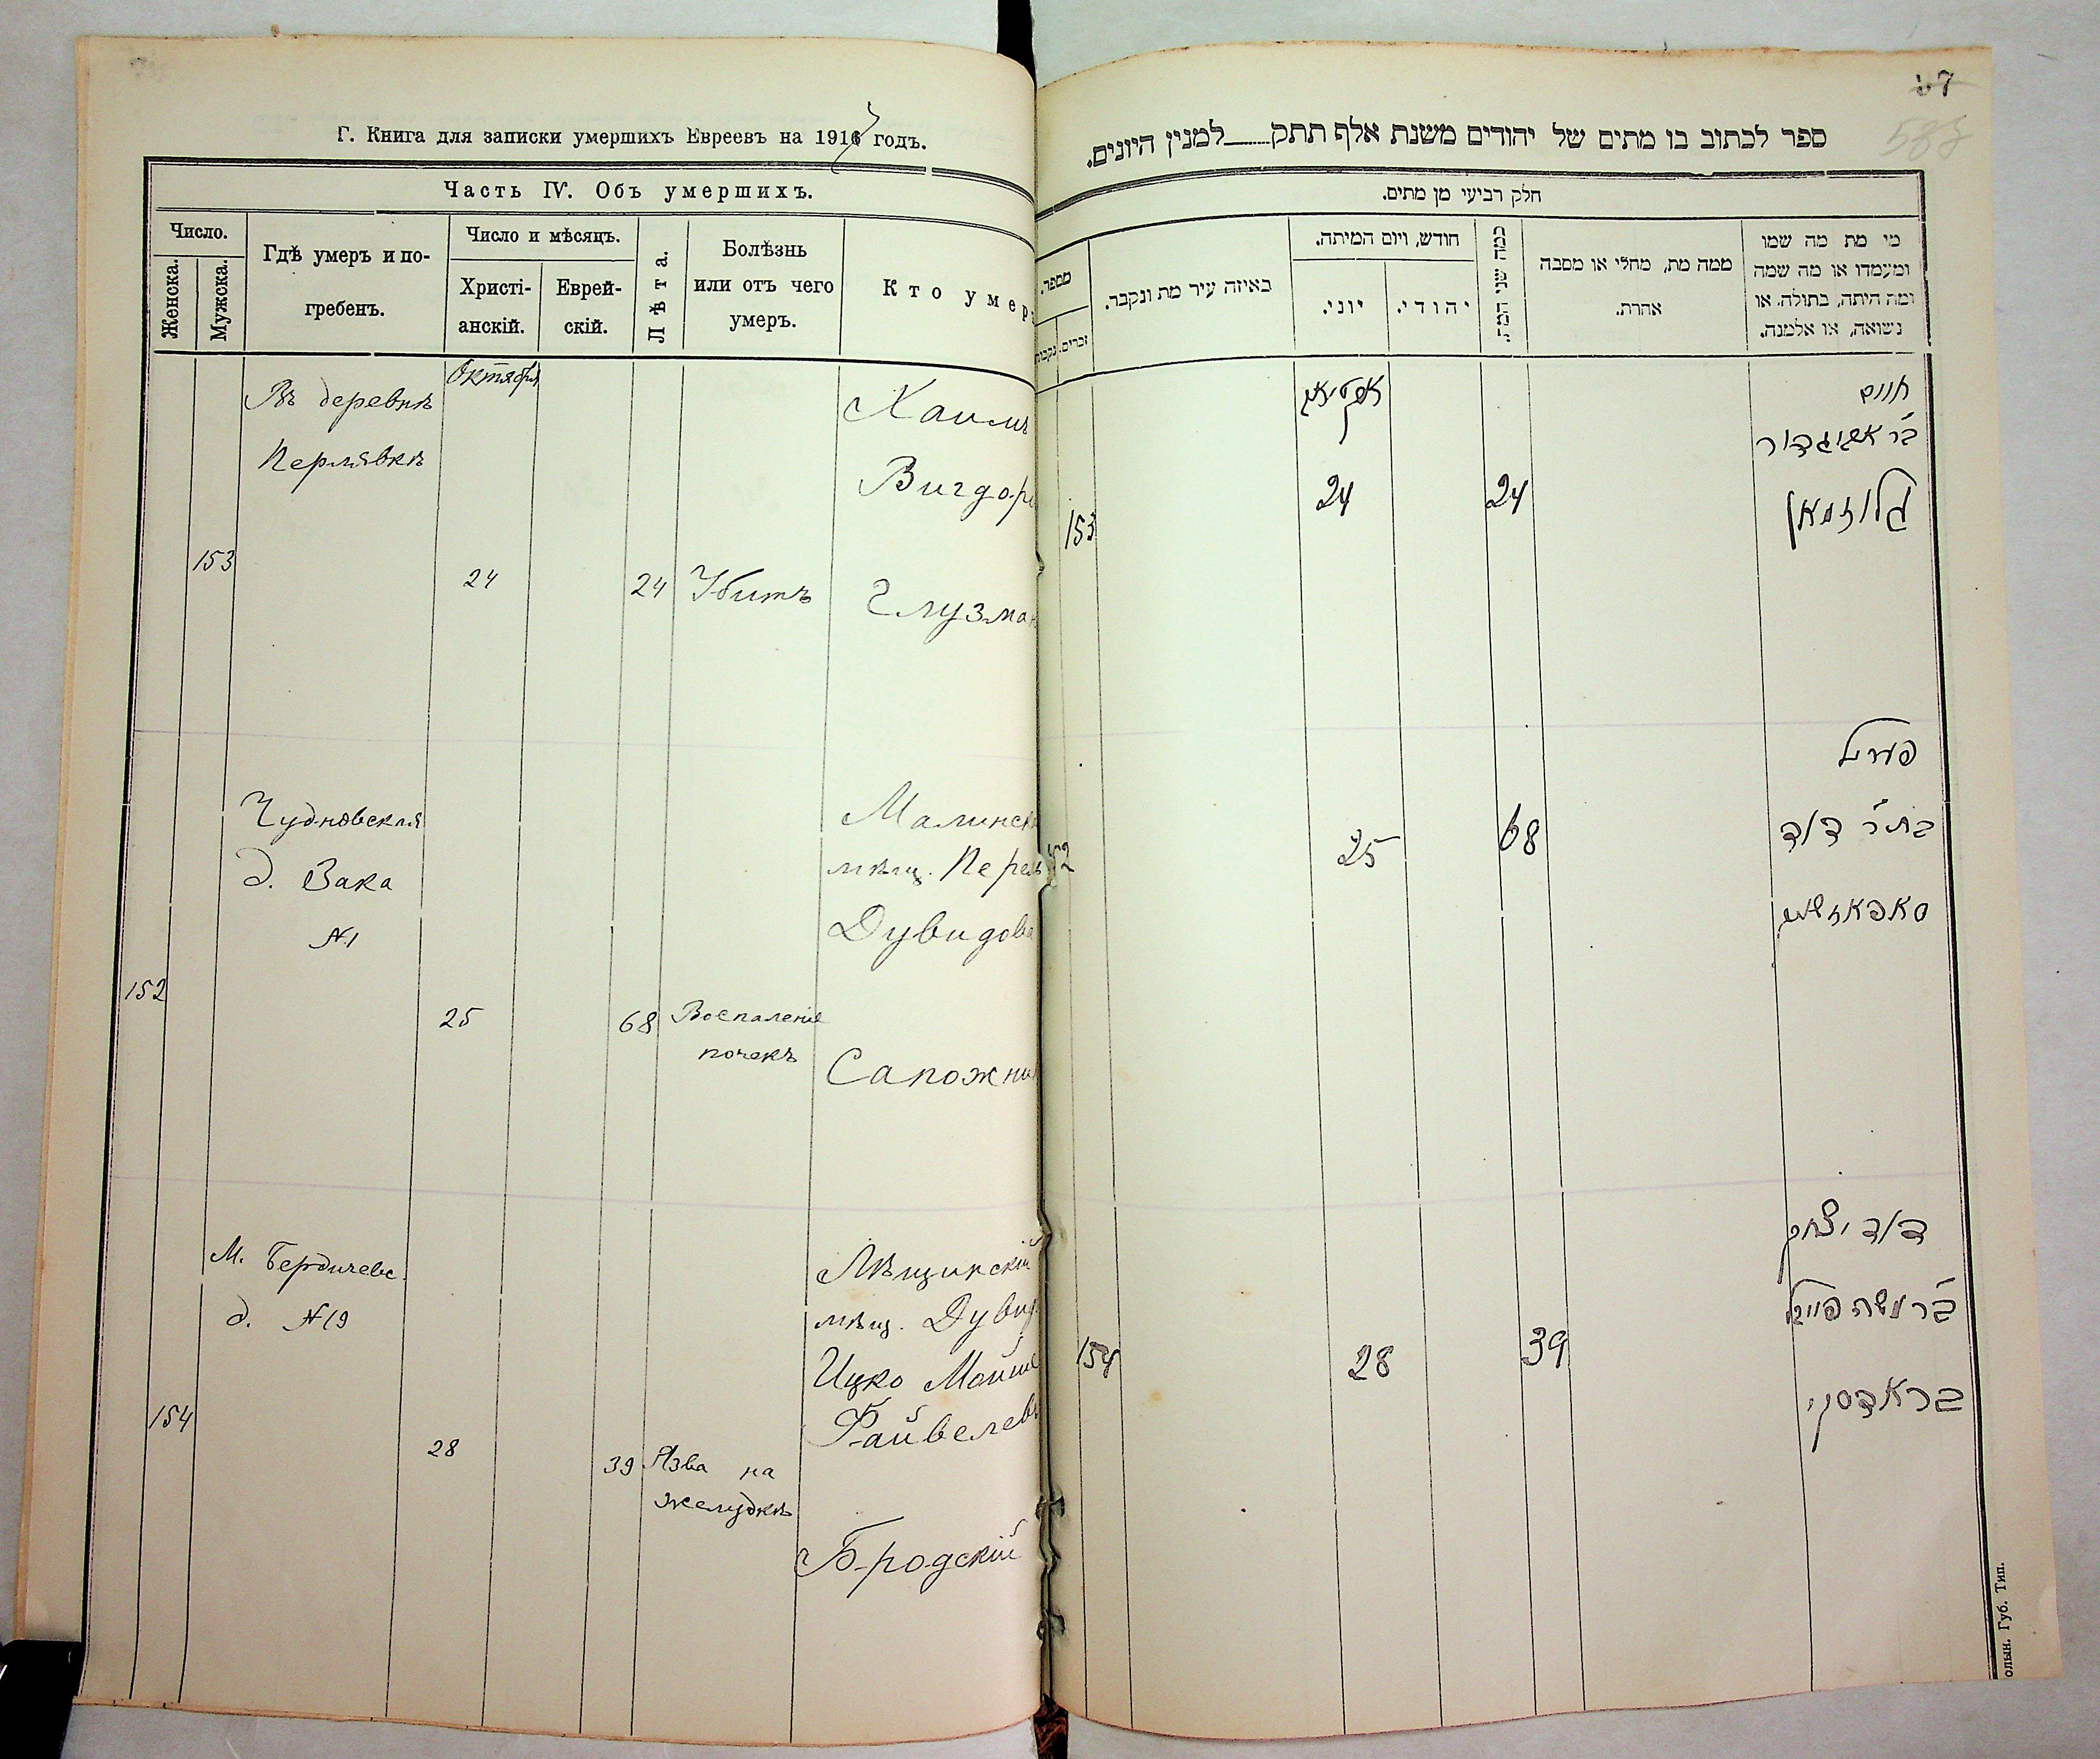 Г. Книга для записки умершихъ Евреевъ на 1916 годъ.
Часть IV. Объ умершихъ.
Число.
Женска.
Мужска.
Гдѣ умеръ и по-
гребенъ.
Число и мѣсяцъ.
Христі-
анскій.
Еврей-
скій.
Лѣта.
Болѣзнь
или отъ чего
умеръ.
Кто умер
Въ деревнѣ
Пермявкѣ
Октября
153
24
24
Убитъ
Хаимъ
Вигдоро
Глузман
Чудновская
д. Зака
№1
152
25
68
Воспаленіе
почекъ
Малинска
мѣщ. Перель
Дувидова
Сапожник
М. Бердичевс.
д. №19
154
28
39
Язва на
желудкѣ
Лѣщинскій
мѣщ. Дувид
Ицко Мойше
Файвелевъ
Бродскій
67
583
ספר לכתוב בו מתים של יהודים משנת אלף תתק____למנין היונים.
חלק רביעי מן מתים.
מספר.
זכרים.
נקבות
באיזה עיר מת ונקבר.
חודש, ויום המיתה.
יוני.
יהודי.
כמה שני המת
ממה מת, מחלי או מסבה
אהרת.
מי מת מה שמו
ומעמדו או מה שמה
ומה היתה, בתולה, או
נשואה, או אלמנה.
153
24
24
חיים
ב״ר אביגדור
גלוזמאן
52
25
68
פערל
בת״ר דוד
סאפאזשניק
154
28
39
דוד יצחק
ב״ר משה פייוויל
בראדסקי
олын. Губ. Тип.